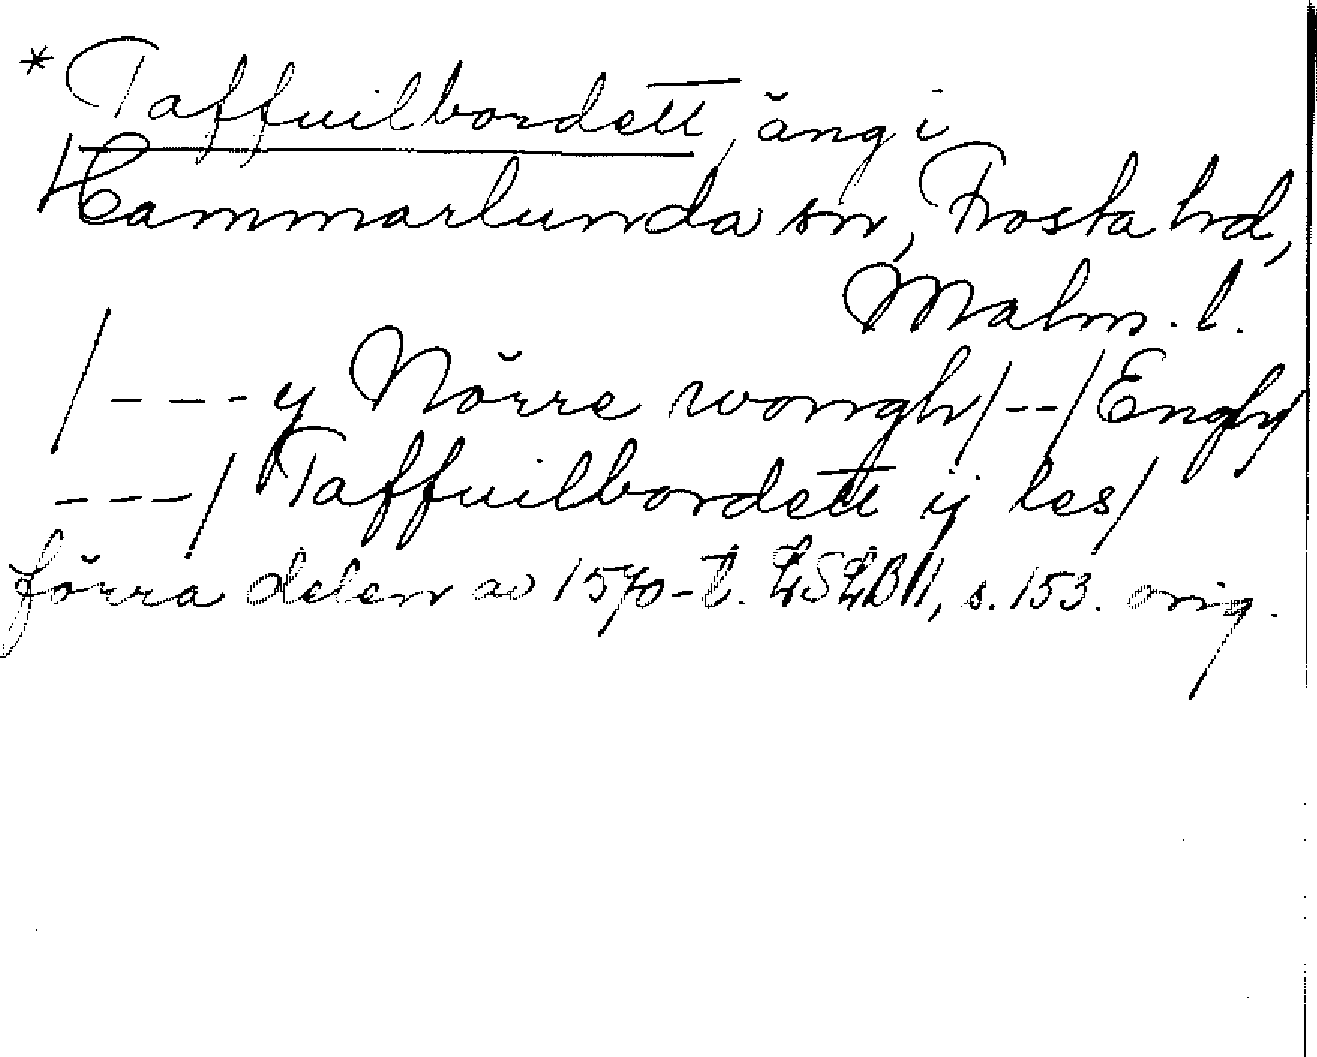 * Taffuilbordett, äng i
Hammarlunda sn, Frosta hd,
Malm. l.
/---y Nörre wongh/--/Engh
---/ Taffuilbordett ij les/
förra delen av 1570-t. LSLB II, s. 153. orig.